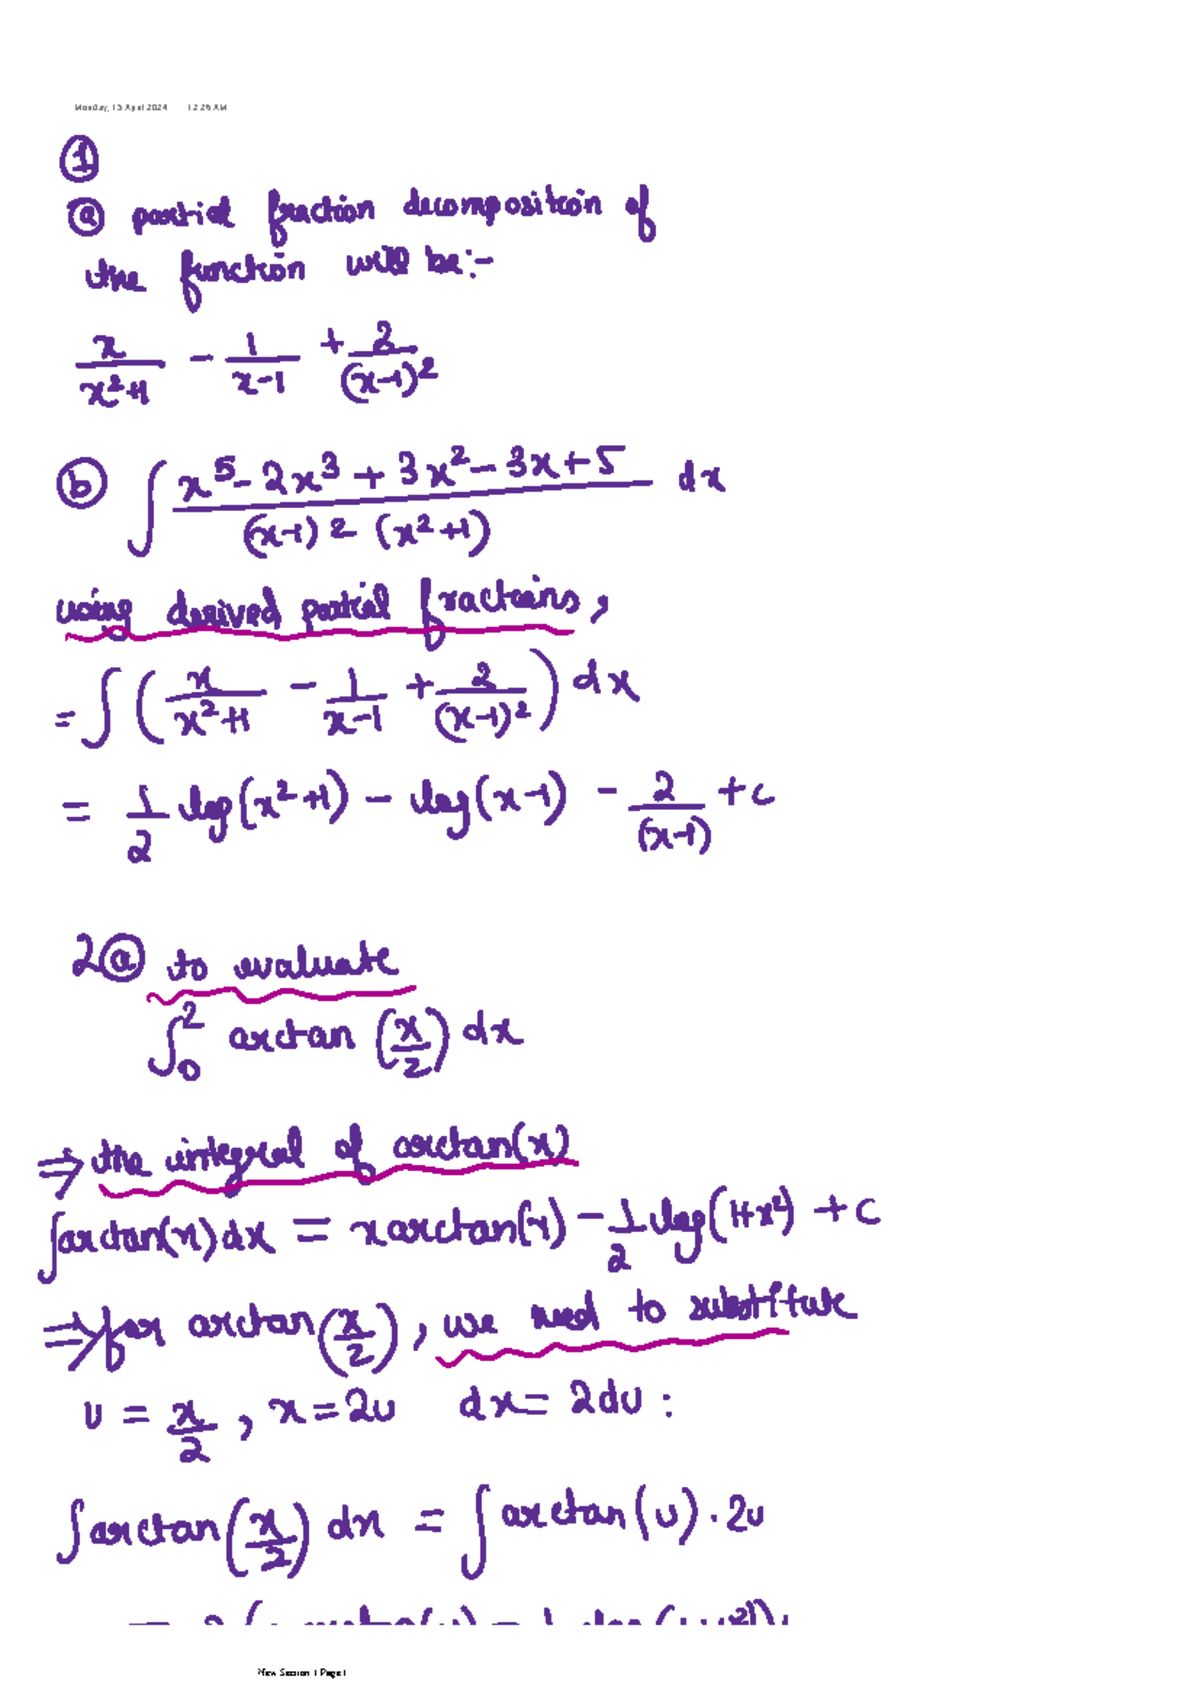 Monday, 15 April 2024 12:26 AM
①
ⓐ partial fraction decomposition of
the function will be:-
x/(x²+1) - 1/(x-1) + 2/(x-1)²
ⓑ ∫ (x⁵ - 2x³ + 3x² - 3x + 5)/((x-1)² (x²+1)) dx
using derived partial fractions,
= ∫ ( x/(x²+1) - 1/(x-1) + 2/(x-1)² ) dx
= 1/2 log(x²+1) - log(x-1) - 2/(x-1) + c
2ⓐ to evaluate
∫₀² arctan (x/2) dx
⇒ the integral of arctan(x)
∫arctan(x) dx = x arctan(x) - 1/2 log(1+x²) + c
⇒ for arctan(x/2), we need to substitute
u = x/2, x = 2u dx = 2du :
∫arctan(x/2) dx = ∫arctan(u) . 2u
New Section 1 Page 1